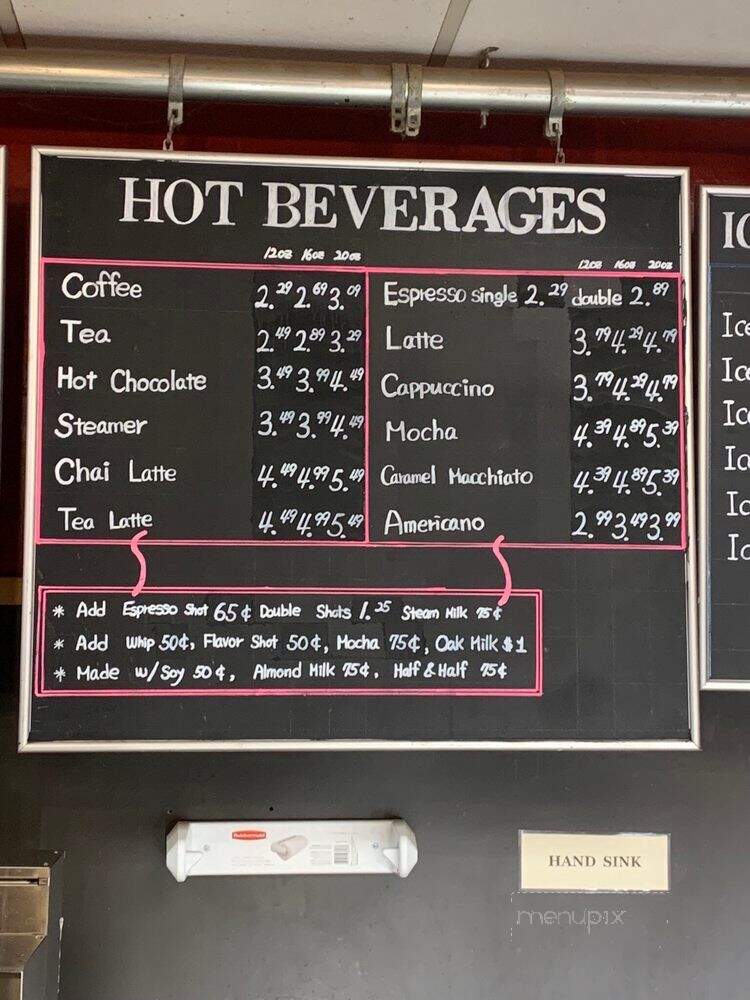 HOT BEVERAGES
12oz 16oz 20oz
Coffee 2.29 2.69 3.09
Tea 2.49 2.89 3.29
Hot Chocolate 3.49 3.99 4.49
Steamer 3.49 3.99 4.49
Chai Latte 4.49 4.99 5.49
Tea Latte 4.49 4.99 5.49
12oz 16oz 20oz
Espresso single 2.29 double 2.89
Latte 3.79 4.29 4.79
Cappuccino 3.79 4.29 4.79
Mocha 4.39 4.89 5.39
Caramel Macchiato 4.39 4.89 5.39
Americano 2.99 3.49 3.99
* Add Espresso Shot 65¢ Double Shots 1.25 Steam Milk 75¢
* Add Whip 50¢, Flavor Shot 50¢, Mocha 75¢, Oak Milk $1
* Made w/Soy 50¢, Almond Milk 75¢, Half & Half 75¢
Rubbermaid
HAND SINK
menupix